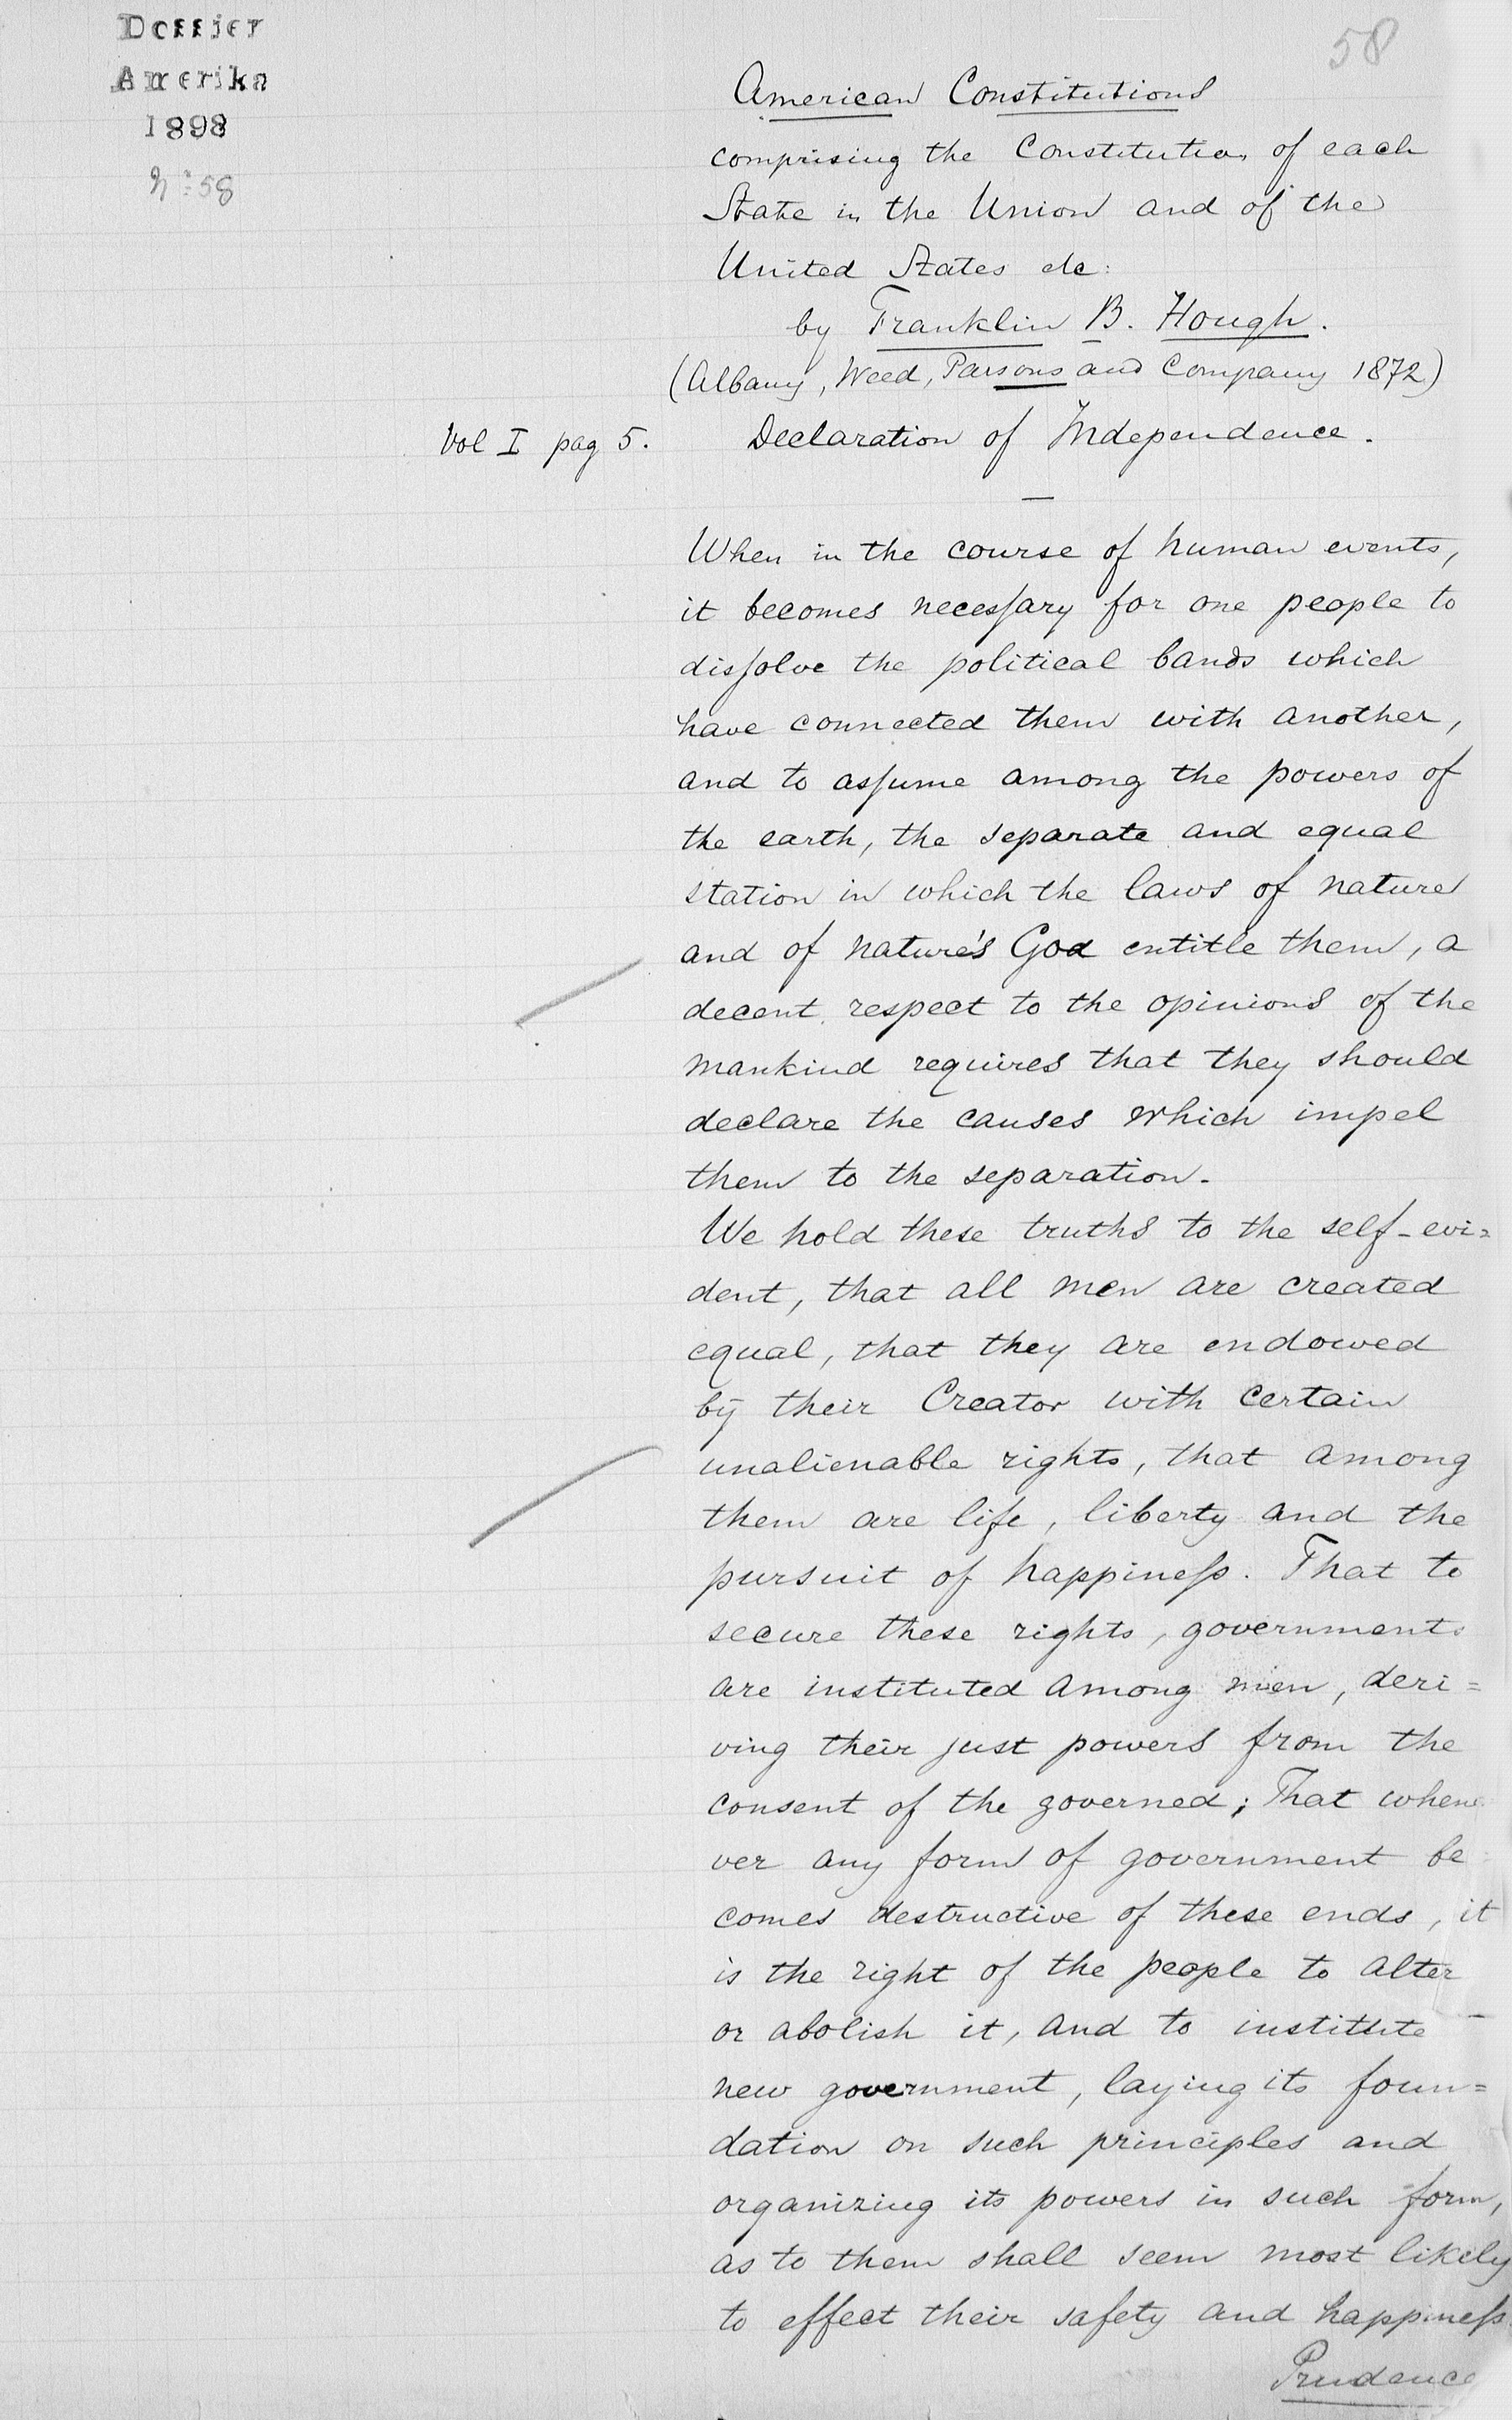 Dossier
Amerika
1898
No 58
58
American Constitutions
comprising the Constitution of each
State in the Union and of the
United States etc:
by Franklin B. Hough.
(Albany, Weed, Parsons and Company 1872)
Vol I pag 5.
Declaration of Independence.
—
When in the course of human events,
it becomes necessary for one people to
dissolve the political bands which
have connected them with another,
and to assume among the powers of
the earth, the separate and equal
station in which the laws of nature
and of nature's God entitle them, a
decent respect to the opinions of the
mankind requires that they should
declare the causes which impel
them to the separation.
We hold these truths to the self-evi=
dent, that all men are created
equal, that they are endowed
by their Creator with certain
unalienable rights, that among
them are life, liberty and the
pursuit of happiness. That to
secure these rights, governments
are instituted among men, deri=
ving their just powers from the
consent of the governed; That whene
ver any form of government be
comes destructive of these ends, it
is the right of the people to alter
or abolish it, and to institute
new government, laying its foun=
dation on such principles and
organizing its powers in such form,
as to them shall seem most likely
to effect their safety and happiness.
Prudence